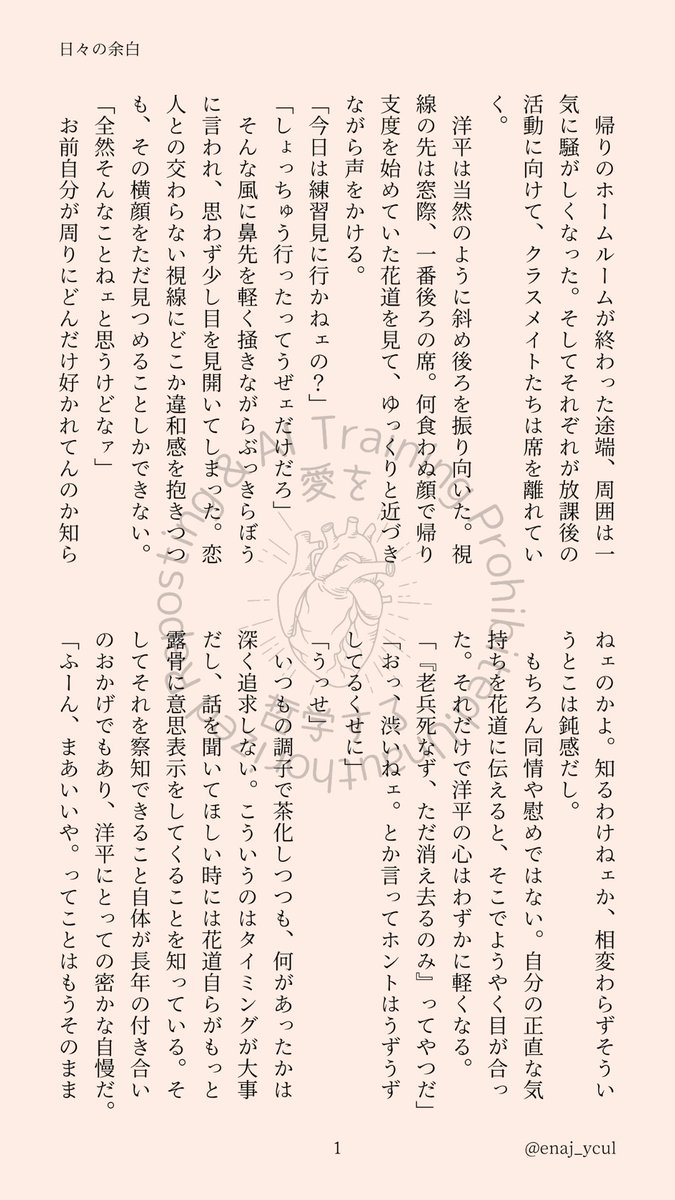 日々の余白
　帰りのホームルームが終わった途端、周囲は一
気に騒がしくなった。そしてそれぞれが放課後の
活動に向けて、クラスメイトたちは席を離れてい
く。
　洋平は当然のように斜め後ろを振り向いた。視
線の先は窓際、一番後ろの席。何食わぬ顔で帰り
支度を始めていた花道を見て、ゆっくりと近づき
ながら声をかける。
「今日は練習見に行かねェの？」
「しょっちゅう行ったってうぜェだけだろ」
　そんな風に鼻先を軽く掻きながらぶっきらぼう
に言われ、思わず少し目を見開いてしまった。恋
人との交わらない視線にどこか違和感を抱きつつ
も、その横顔をただ見つめることしかできない。
「全然そんなことねェと思うけどなァ」
　お前自分が周りにどんだけ好かれてんのか知ら
ねェのかよ。知るわけねェか、相変わらずそうい
うとこは鈍感だし。
　もちろん同情や慰めではない。自分の正直な気
持ちを花道に伝えると、そこでようやく目が合っ
た。それだけで洋平の心はわずかに軽くなる。
「『老兵死なず、ただ消え去るのみ』ってやつだ」
「おっ、渋いねェ。とか言ってホントはうずうず
してるくせに」
「うっせ」
　いつもの調子で茶化しつつも、何があったかは
深く追求しない。こういうのはタイミングが大事
だし、話を聞いてほしい時には花道自らがもっと
露骨に意思表示をしてくることを知っている。そ
してそれを察知できること自体が長年の付き合い
のおかげでもあり、洋平にとっての密かな自慢だ。
「ふーん、まあいいや。ってことはもうそのまま
愛を
哲学する
Unauthorized Reposting & AI Training Prohibited
1
@enaj_ycul